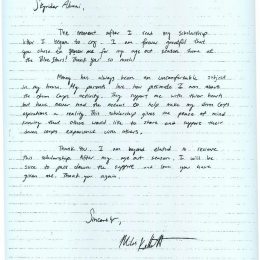 The moment after I read my scholarship
letter I began to cry. I am forever grateful that
you chose to sponsor me for my age out season home at
the Blue Stars! Thank you so much!
Money has always been an uncomfortable subject
in my house. My parents love how passionate I am about
the drum corps activity. They support me with their hearts
but have never had the means to help make my drum corps
aspirations a reality. This scholarship gives me peace of mind
knowing that others would like to share and support their
drum corps experience with others.
Thank you. I am beyond elated to receive
this scholarship. After my age out season I will be
sure to pass down the support and love you have
given me. Thank you again.
Sincerely,